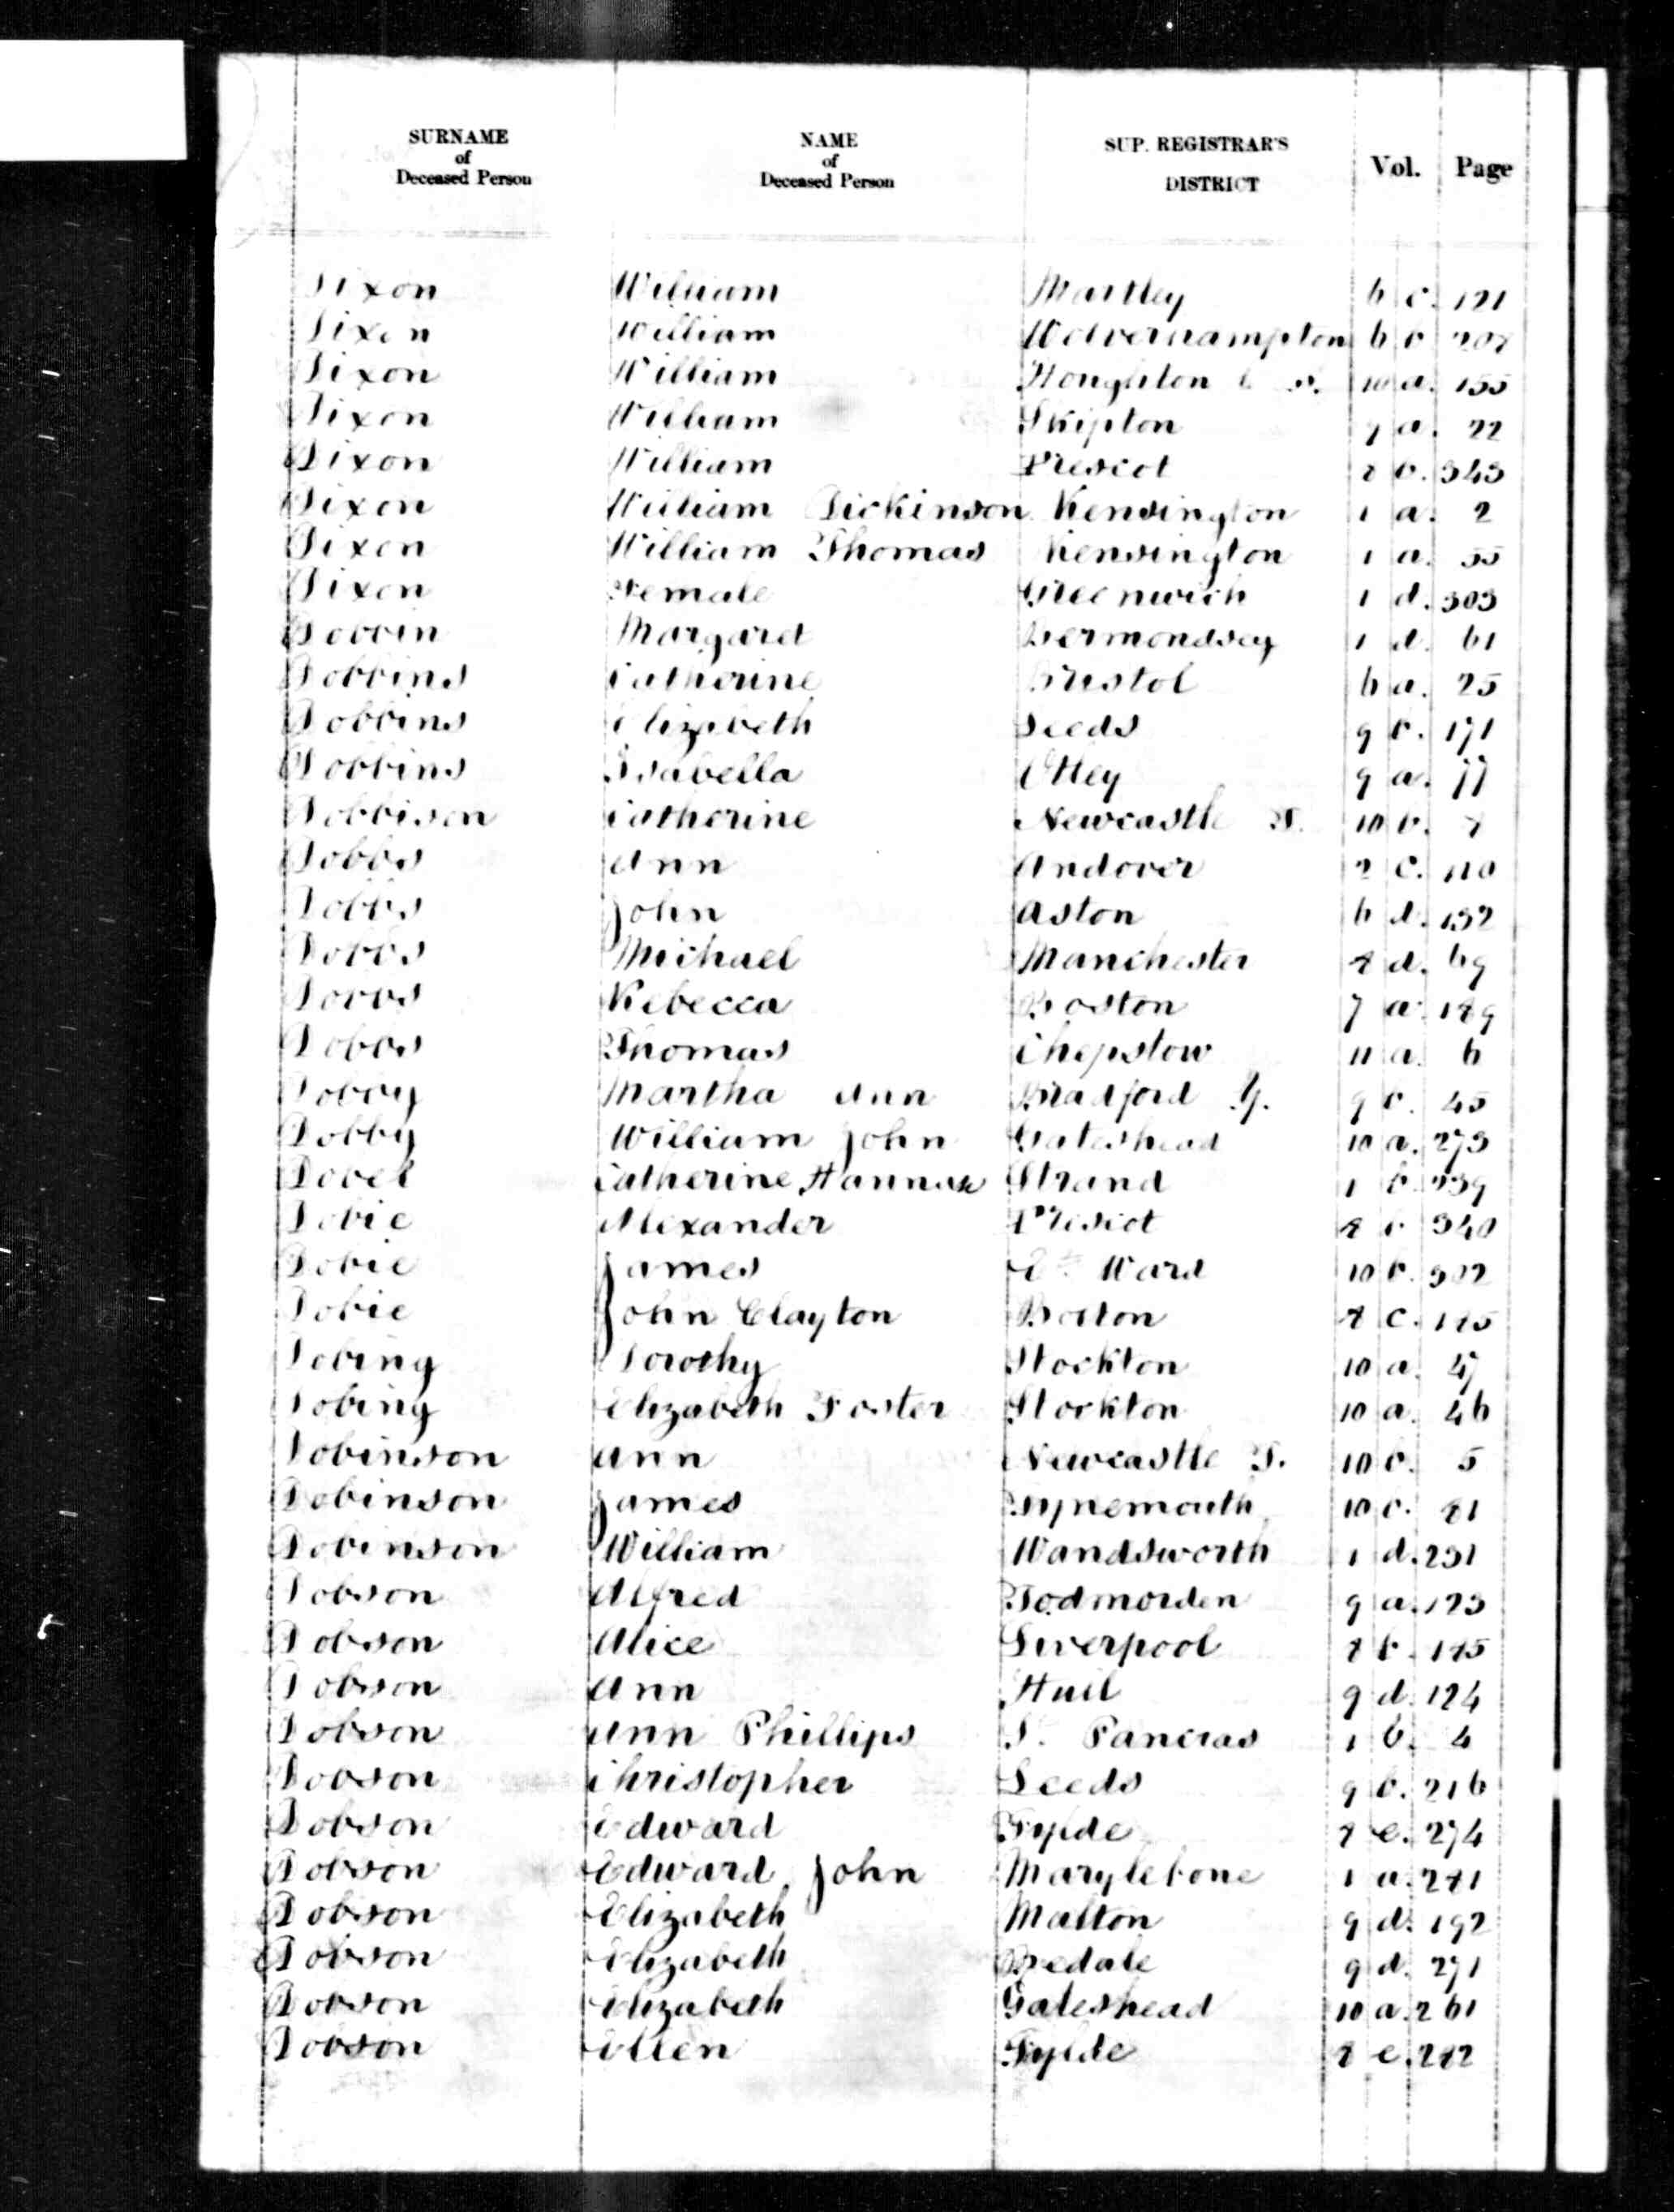 SURNAME of Deceased Person NAME of Deceased Person SUP. REGISTRAR'S DISTRICT Vol. Page
Dixon William Martley 6 c. 121
Dixon William Wolverhampton 6 b
Dixon William Houghton 10 a. 155
Dixon William Skipton 9 a. 22
Dixon William Prescot 8 b. 343
Dixon William Dickinson Kensington 1 a. 2
Dixon William Thomas Kensington 1 a. 55
Dixon Female Greenwich 1 d. 503
Dobbin Margaret Bermondsey 1 d. 61
Dobbins Catherine Bristol 6 a. 25
Dobbins Elizabeth Leeds 9 b. 171
Dobbins Isabella Otley 9 a. 77
Dobbison Catherine Newcastle T. 10 b. 8
Dobbs Ann Andover 2 c. 110
Dobbs John Aston 6 d. 132
Dobbs Michael Manchester 8 d. 69
Dobbs Rebecca Boston 7 a. 189
Dobbs Thomas Chepstow 11 a. 6
Dobby Martha Ann Bradford Y. 9 b. 45
Dobby William John Gateshead 10 a. 273
Dobel Catherine Hannah Strand 1 b.
Dobie Alexander Prescot 8 b 340
Dobie James Ward 10 b.
Dobie John Clayton Bolton 8 c. 185
Dobing Dorothy Stockton 10 a. 47
Dobing Elizabeth Foster Stockton 10 a. 46
Dobinson Ann Newcastle T. 10 b. 5
Dobinson James Tynemouth 10 b. 81
Dobinson William Wandsworth 1 d. 231
Dobson Alfred Todmorden 9 a. 123
Dobson Alice Liverpool 8 b. 185
Dobson Ann Hull 9 d. 124
Dobson Ann Phillips S. Pancras 1 b. 4
Dobson Christopher Leeds 9 b. 216
Dobson Edward Fylde 8 e. 274
Dobson Edward John Marylebone 1 a. 281
Dobson Elizabeth Malton 9 d. 192
Dobson Elizabeth Bedale 9 d. 271
Dobson Elizabeth Gateshead 10 a. 261
Dobson Ellen Fylde 8 e. 282